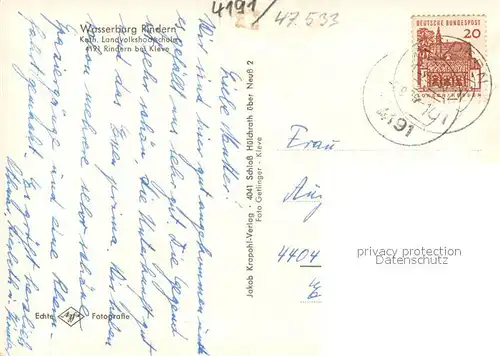 4191/
47.533
Wasserburg Rindern
Kath. Landvolkshochschule
4191 Rindern bei Kleve
DEUTSCHE BUNDESPOST
20
4191
Liebe Mutter!
Wir sind hier gut angekommen und
es gefällt uns sehr gut. Die Gegend
ist sehr schön, die Unterkunft gut
und das Essen prima. Wir haben
schon mehrere sehr schöne
Spaziergänge und eine Rhein-
fahrt gemacht. Es grüßt herzlich
Jakob Krapohl-Verlag · 4041 Schloß Hülchrath über Neuß 2
Foto Gettlinger - Kleve
Frau
4404
privacy protection
Datenschutz
Echte Agfa Fotografie